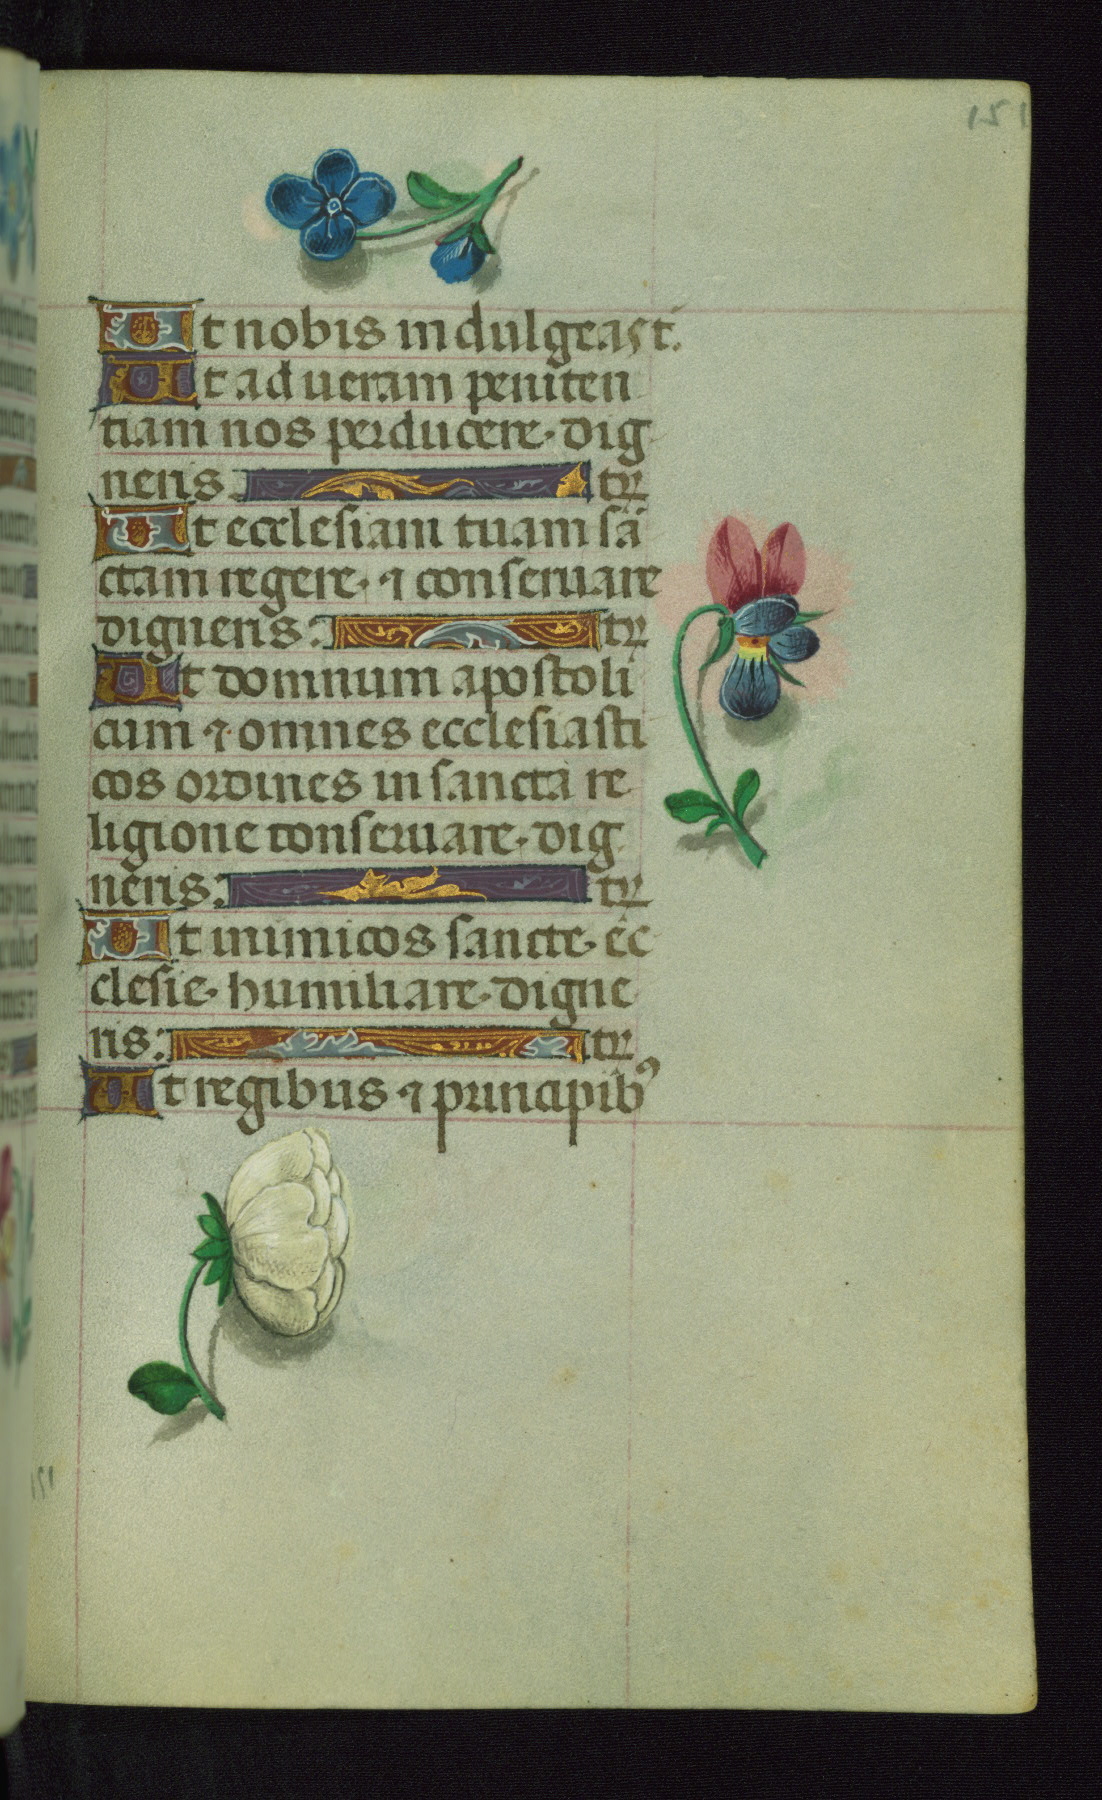 151
Ut nobis indulgeas t.
Ut ad ueram peniten
tiam nos perducere· dig
neris. tr
Ut ecclesiam tuam sā
ctam regere· ⁊ conseruare
digneris: tr
Ut domnum apostoli
cum ⁊ omnes ecclesiasti
cos ordines in sancta re
ligione conseruare· dig
neris: tr
Ut inimicos sancte· ec
clesie· humiliare· digne
ris: tr
Ut regibus ⁊ principibꝰ